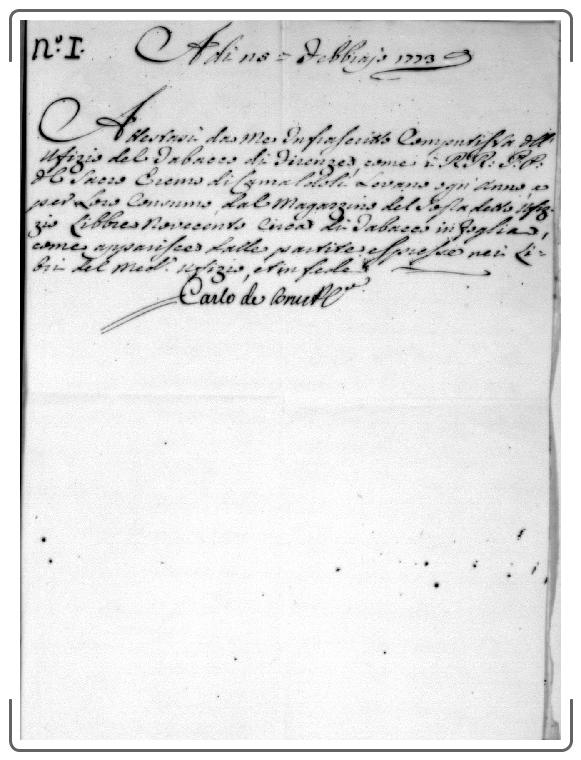 N.º I.
A di 18 = Febbrajo 1773
Attestasi da me Infrascritto Computista dell'
Ufizio del Tabacco di Firenze, come i R.R. P.P.
del Sacro Eremo di Camaldoli, Levano ogni anno, e
per Loro Consumo dal Magazzino del Sopradetto Ufi-
zio Libbre Novecento Circa di Tabacco in foglia,
come apparisce dalle partite espresse nei Li-
bri del Med.º Ufizio, et in fede
Carlo de